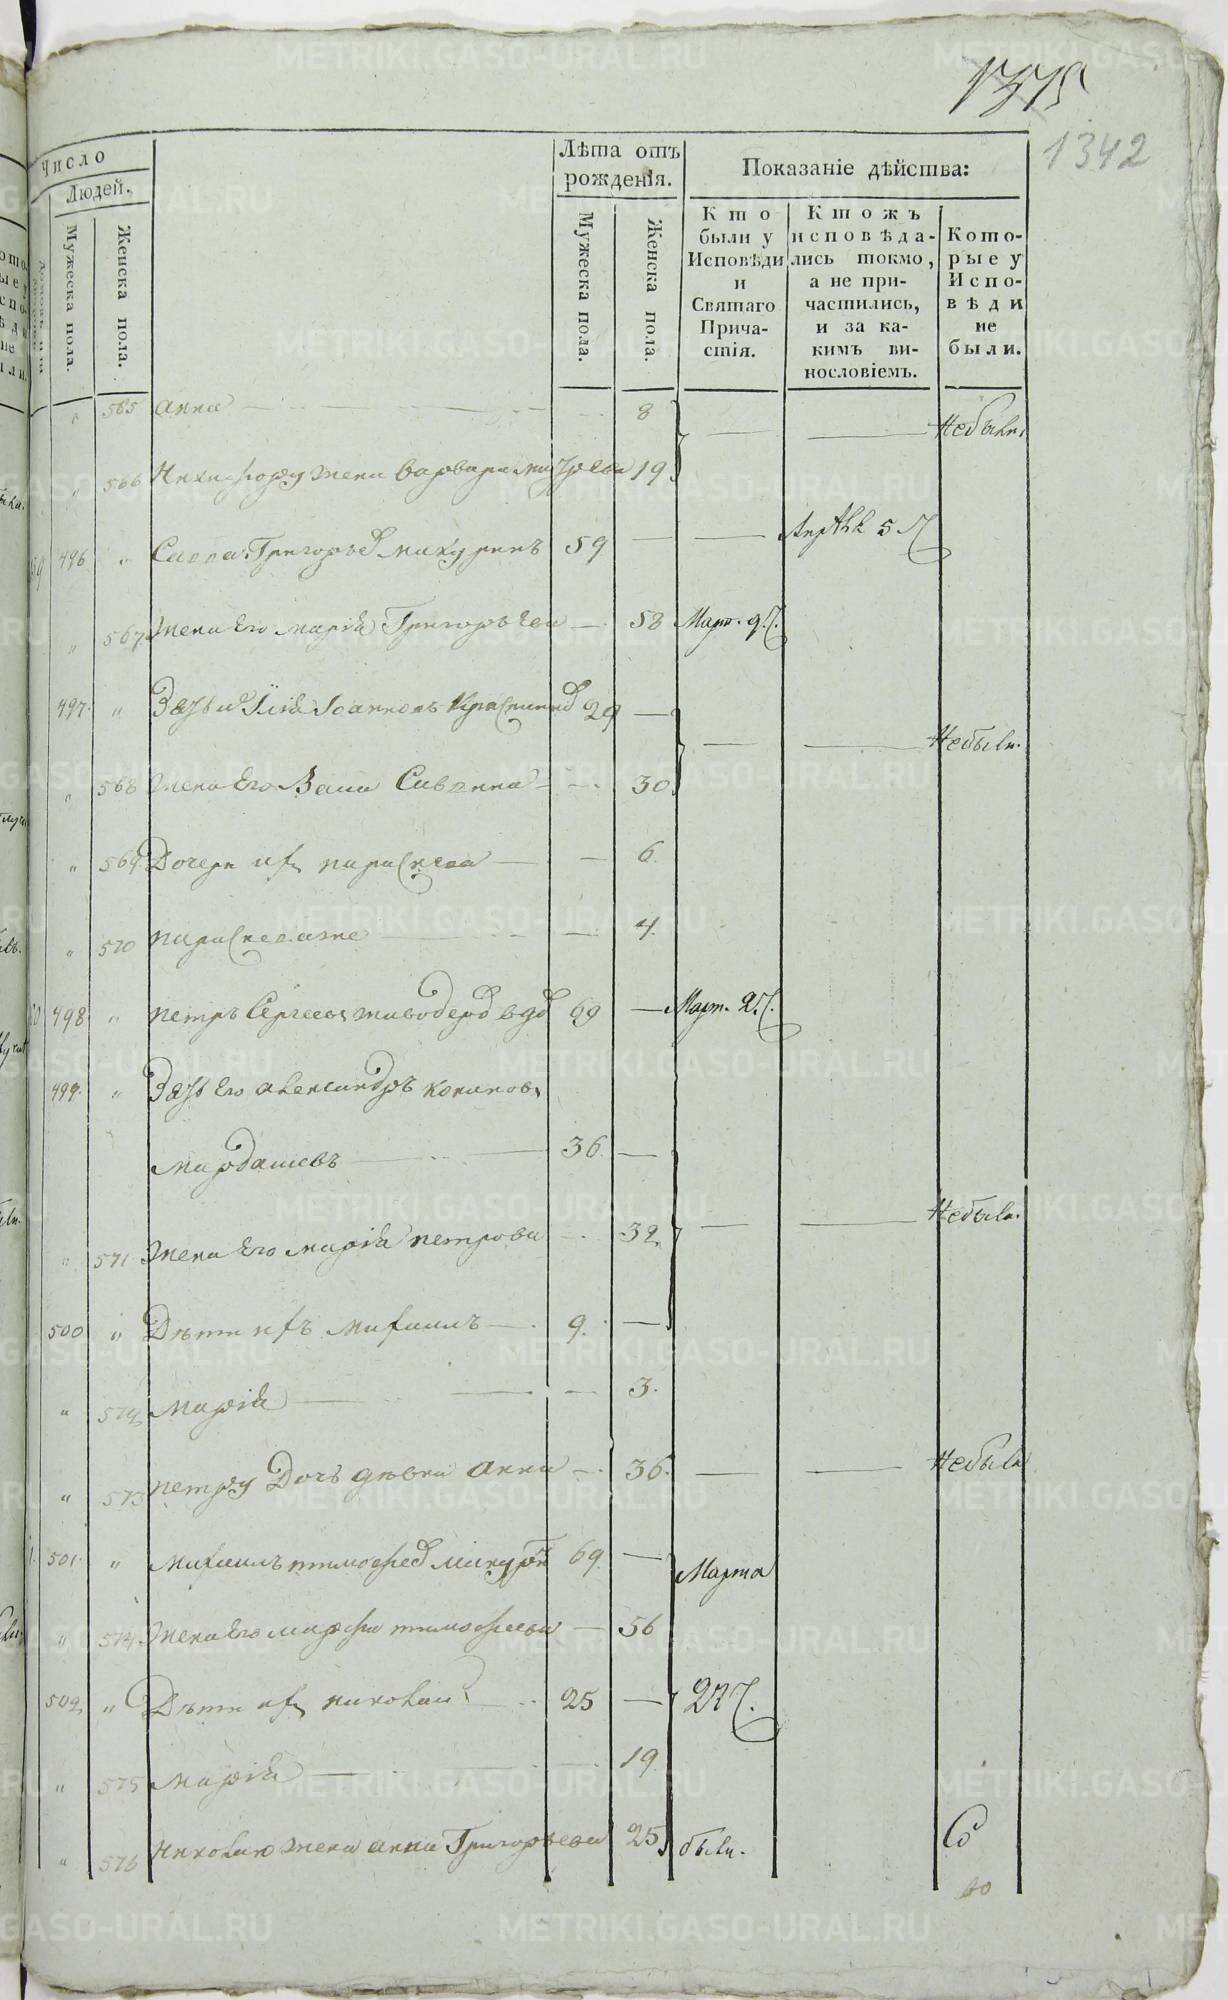 1375
1342
Число
Людей.
Мужеска пола.
Женска пола.
Лѣта отъ рожденія.
Мужеска пола.
Женска пола.
Показаніе дѣйства:
Кто были у Исповѣди и Святаго Причастія.
Ктожъ исповѣдались токмо, а не причастились, и за какимъ винословіемъ.
Которые у Исповѣди не были.
" 565 Анна 8
Небыли.
" 566 Никифору жена Варвара 19
496 " Савва Григорьевъ Микуринъ 59 5
" 567 Жена Его Марія Григорьева 58 Март. 9.
497. " Зять и Iоанновъ 29
Небыли.
" 568 Жена Его Савина 30
" 569 Дочери ихъ параскева 6.
" 570 параскева же 4.
498 " петръ Сергеевъ вдов 69 Март. 2
499. " Зять Его александръ
Мардашевъ 36.
Небыли.
" 571 Жена Его Марія петрова 32
500 " Дѣти ихъ михаилъ 9.
" 572 Марія 3.
" 573 петру Дочь дѣвка Анна 36. Небыла
501. " михаилъ тимофеев 69 Марта
" 574 Жена Его Марфа тимофеева 56
502 " Дѣти ихъ николаи 25
" 575 Марія 19
" 576 николаю жена анна Григорьева 25 были.
60
METRIKI.GASO-URAL.RU